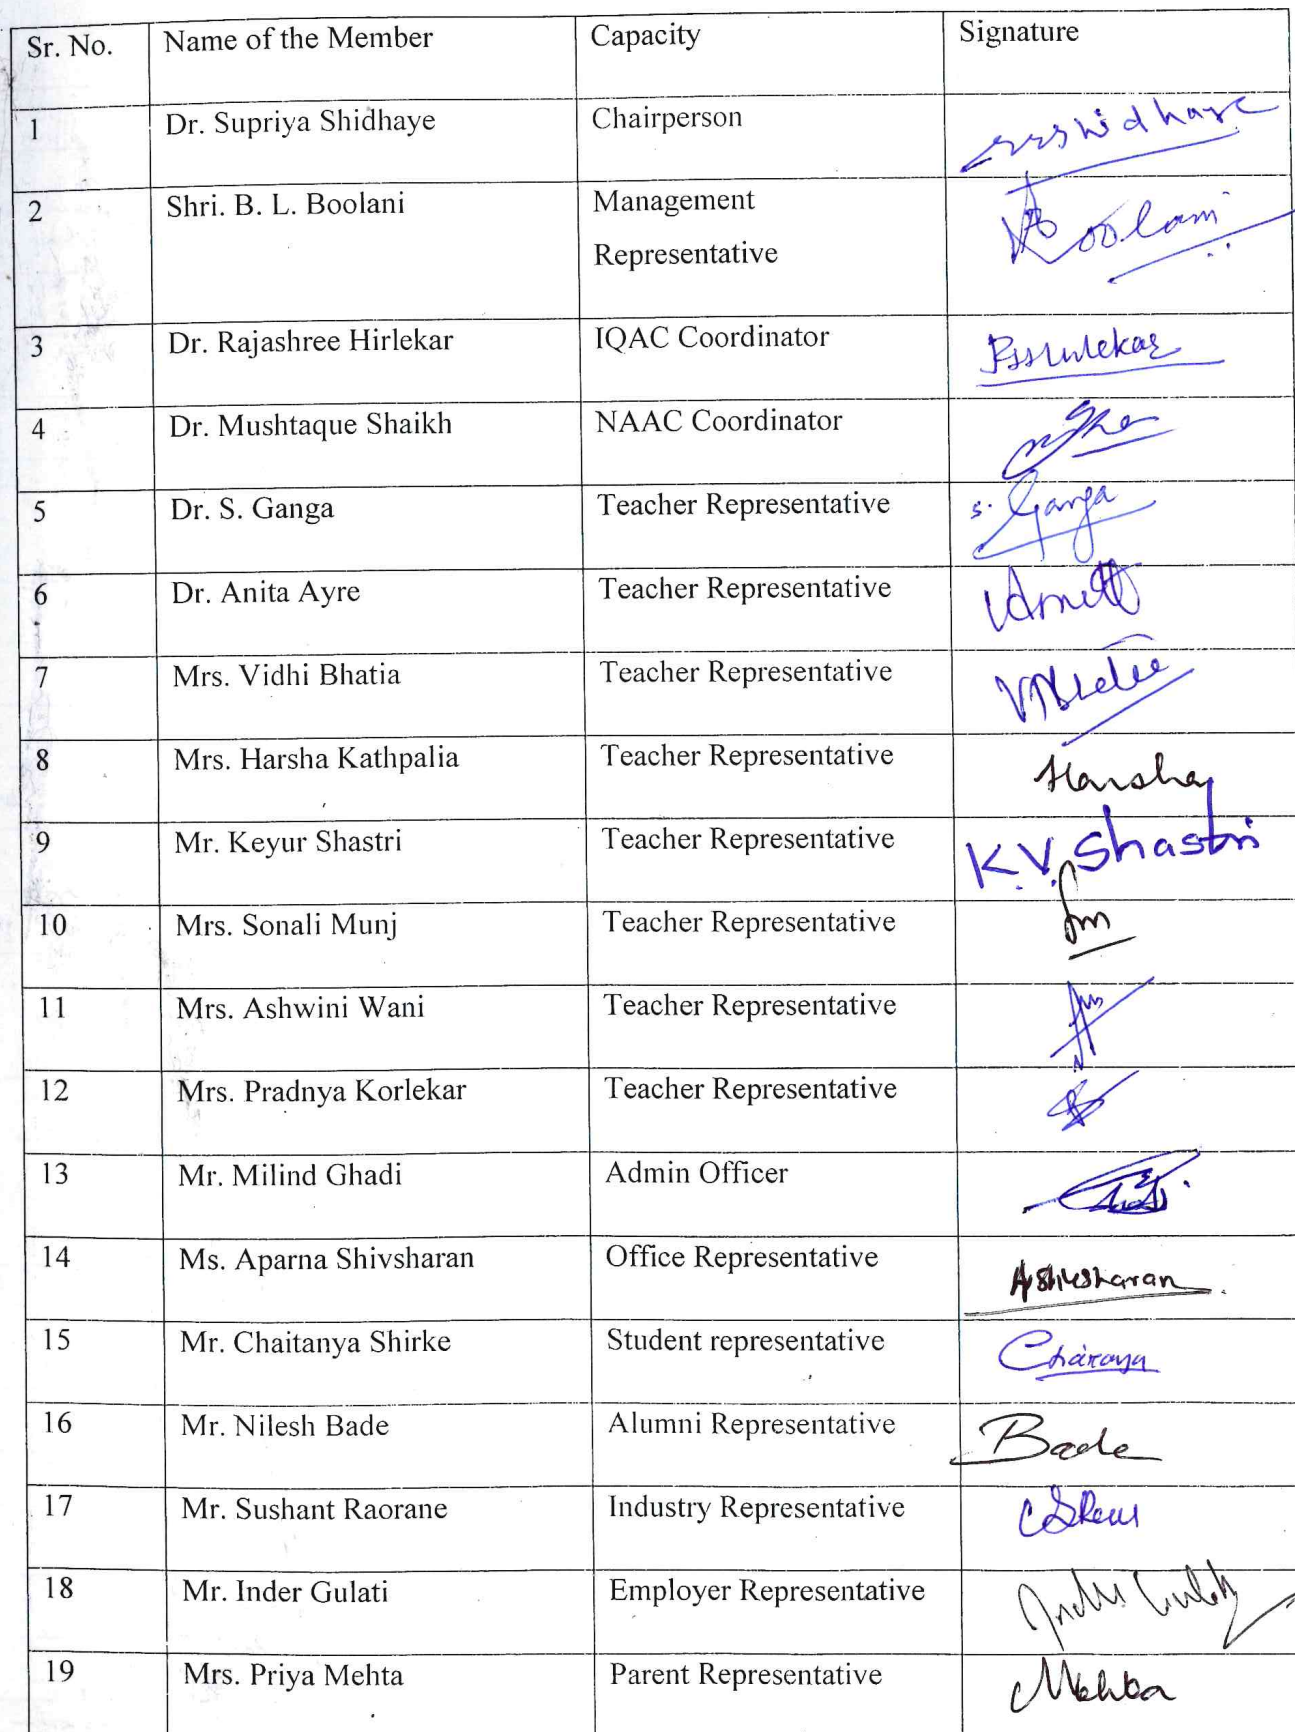 Sr. No. Name of the Member Capacity Signature
1 Dr. Supriya Shidhaye Chairperson
2 Shri. B. L. Boolani Management
Representative
Boolani
3 Dr. Rajashree Hirlekar IQAC Coordinator
4 Dr. Mushtaque Shaikh NAAC Coordinator
5 Dr. S. Ganga Teacher Representative S. Ganga
6 Dr. Anita Ayre Teacher Representative
7 Mrs. Vidhi Bhatia Teacher Representative
8 Mrs. Harsha Kathpalia Teacher Representative Harsha
9 Mr. Keyur Shastri Teacher Representative K.V. Shastri
10 Mrs. Sonali Munj Teacher Representative
11 Mrs. Ashwini Wani Teacher Representative
12 Mrs. Pradnya Korlekar Teacher Representative
13 Mr. Milind Ghadi Admin Officer
14 Ms. Aparna Shivsharan Office Representative AShivsharan
15 Mr. Chaitanya Shirke Student representative
16 Mr. Nilesh Bade Alumni Representative Bade
17 Mr. Sushant Raorane Industry Representative
18 Mr. Inder Gulati Employer Representative
19 Mrs. Priya Mehta Parent Representative Mehta